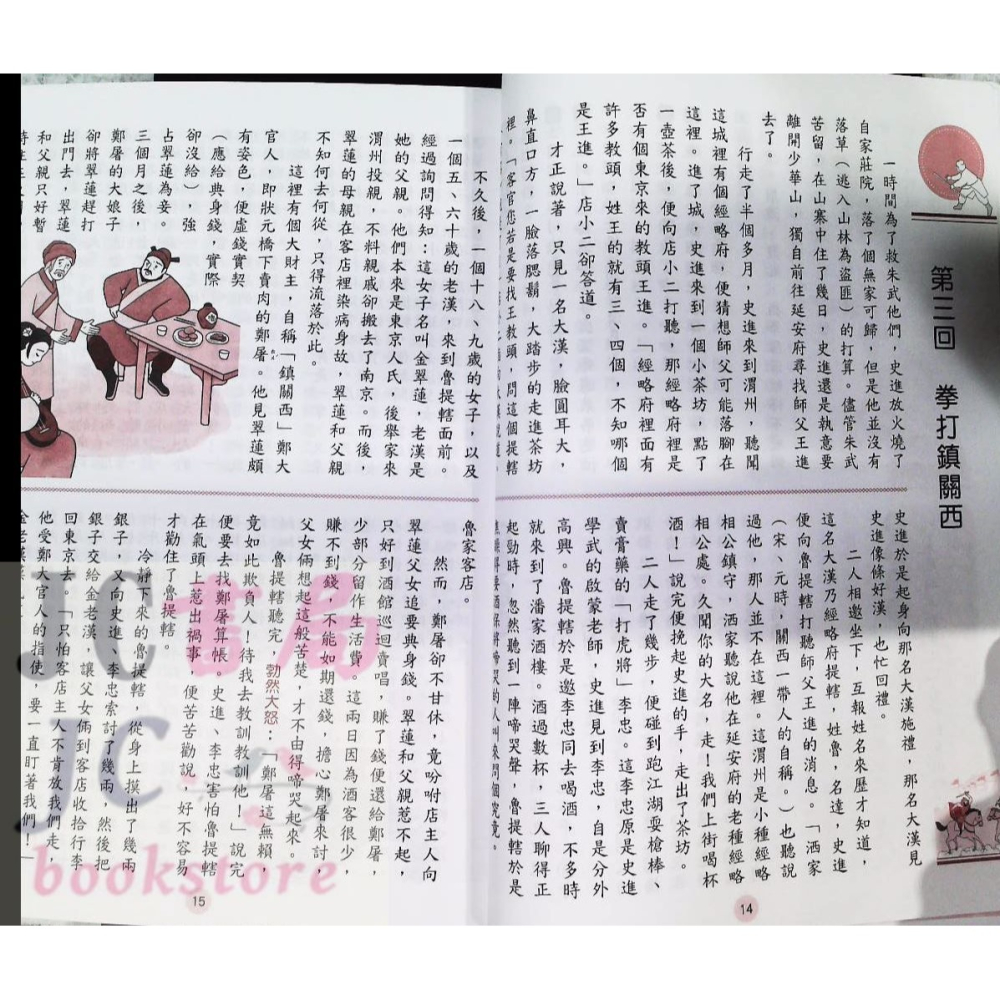 第三回 拳打鎮關西
一時間為了救朱武他們，史進放火燒了
自家莊院，落了個無家可歸，但是他並沒有
落草（逃入山林為盜匪）的打算。儘管朱武
苦留，在山寨中住了幾日，史進還是執意要
離開少華山，獨自前往延安府尋找師父王進
去了。
行走了半個多月，史進來到渭州，聽聞
這城裡有個經略府，便猜想師父可能落腳在
這裡。進了城，史進來到一個小茶坊，點了
一壺茶後，便向店小二打聽，那經略府裡是
否有個東京來的教頭王進。「經略府裡面有
許多教頭，姓王的就有三、四個，不知哪個
是王進。」店小二卻答道。
才正說著，只見一名大漢，臉圓耳大，
鼻直口方，一臉落腮鬍，大踏步的走進茶坊
裡。「客官您若是要找王教頭，問這個提轄
史進於是起身向那名大漢施禮，那名大漢見
史進像條好漢，也忙回禮。
二人相邀坐下，互報姓名來歷才知道，
這名大漢乃經略府提轄，姓魯，名達，史進
便向魯提轄打聽師父王進的消息。「洒家
（宋、元時，關西一帶人的自稱。）也聽說
過他，那人並不在這裡。這渭州是小種經略
相公鎮守，洒家聽說他在延安府的老種經略
相公處。久聞你的大名，走！我們上街喝杯
酒！」說完便挽起史進的手，走出了茶坊。
二人走了幾步，便碰到跑江湖耍槍棒、
賣膏藥的「打虎將」李忠。這李忠原是史進
學武的啟蒙老師，史進見到李忠，自是分外
高興。魯提轄於是邀李忠同去喝酒，不多時
就來到了潘家酒樓。酒過數杯，三人聊得正
起勁時，忽然聽到一陣啼哭聲，魯提轄於是
14
不久後，一個十八、九歲的女子，以及
一個五、六十歲的老漢，來到魯提轄面前。
經過詢問得知：這女子名叫金翠蓮，老漢是
她的父親。他們本來是東京人氏，後舉家來
渭州投親，不料親戚卻搬去了南京。而後，
翠蓮的母親在客店裡染病身故，翠蓮和父親
不知何去何從，只得流落於此。
這裡有個大財主，自稱「鎮關西」鄭大
官人，即狀元橋下賣肉的鄭屠。他見翠蓮頗
有姿色，便虛錢實契
（應給典身錢，實際
卻沒給），強
占翠蓮為妾。
三個月之後，
鄭屠的大娘子
卻將翠蓮趕打
出門去，翠蓮
和父親只好暫
魯家客店。
然而，鄭屠卻不甘休，竟吩咐店主人向
翠蓮父女追要典身錢。翠蓮和父親惹不起，
只好到酒館巡迴賣唱，賺了錢便還給鄭屠，
少部分留作生活費。這兩日因為酒客很少，
賺不到錢，不能如期還錢，擔心鄭屠來討，
父女倆想起這般苦楚，才不由得啼哭起來。
魯提轄聽完，勃然大怒：「鄭屠這無賴，
竟如此欺負人！待我去教訓教訓他！」說完
便要去找鄭屠算帳。史進、李忠害怕魯提轄
在氣頭上惹出禍事，便苦苦勸說，好不容易
才勸住了魯提轄。
冷靜下來的魯提轄，從身上摸出了幾兩
銀子，又向史進、李忠索討了幾兩，然後把
銀子交給金老漢，讓父女倆到客店收拾行李
回東京去。「只怕客店主人不肯放我們走，
他受鄭大官人的指使，要一直盯著我們！」
15
JC書局
JC
bookstore